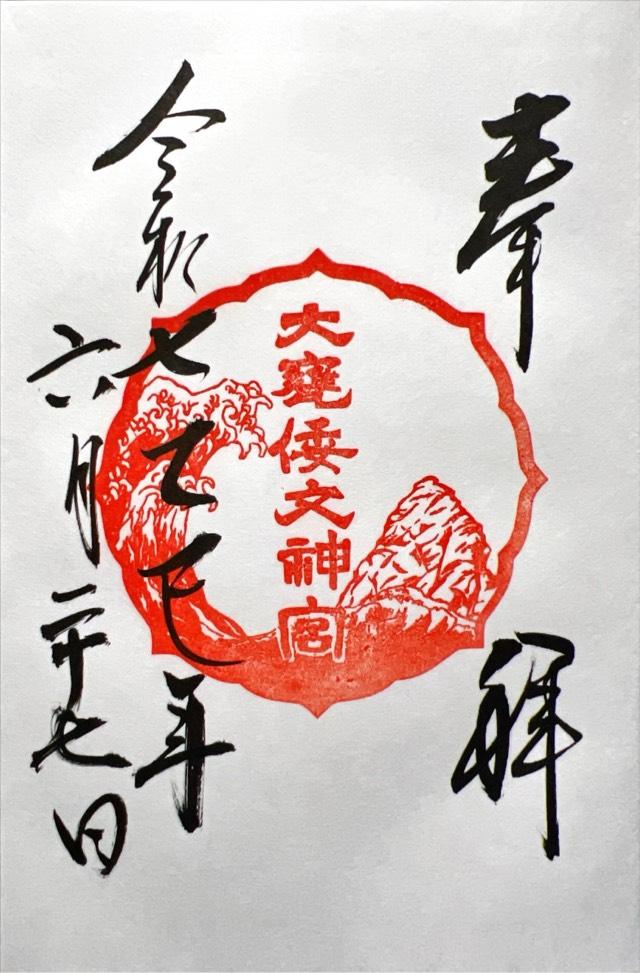 奉拝
大甕倭文神宮
令和七乙巳年
六月二十七日